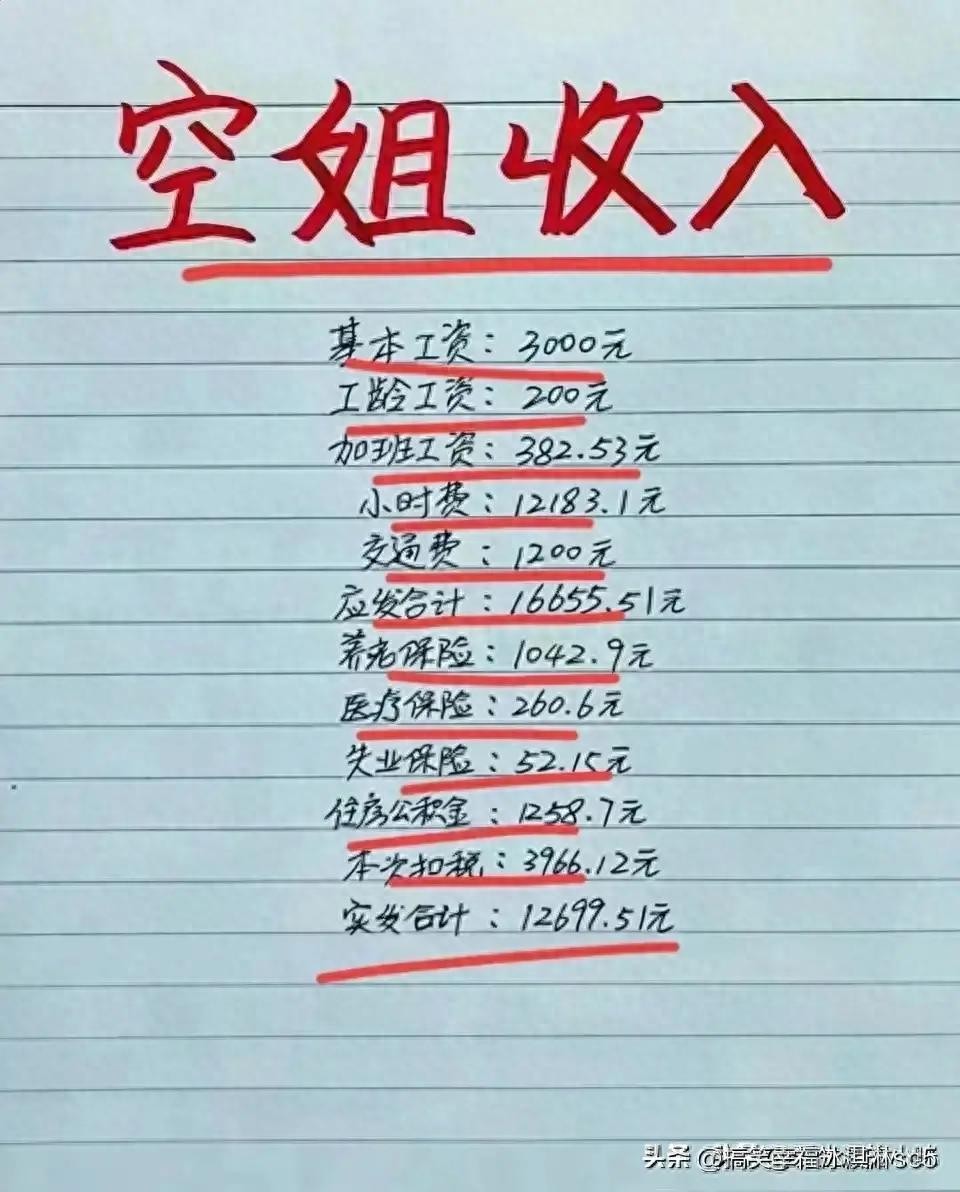 空姐收入
基本工资：3000元
工龄工资：200元
加班工资：382.53元
小时费：12183.1元
交通费：1200元
应发合计：16655.51元
养老保险：1042.9元
医疗保险：260.6元
失业保险：52.15元
住房公积金：1258.7元
本次扣税：3966.12元
实发合计：12699.51元
头条 @搞笑幸福冰淇淋sc6